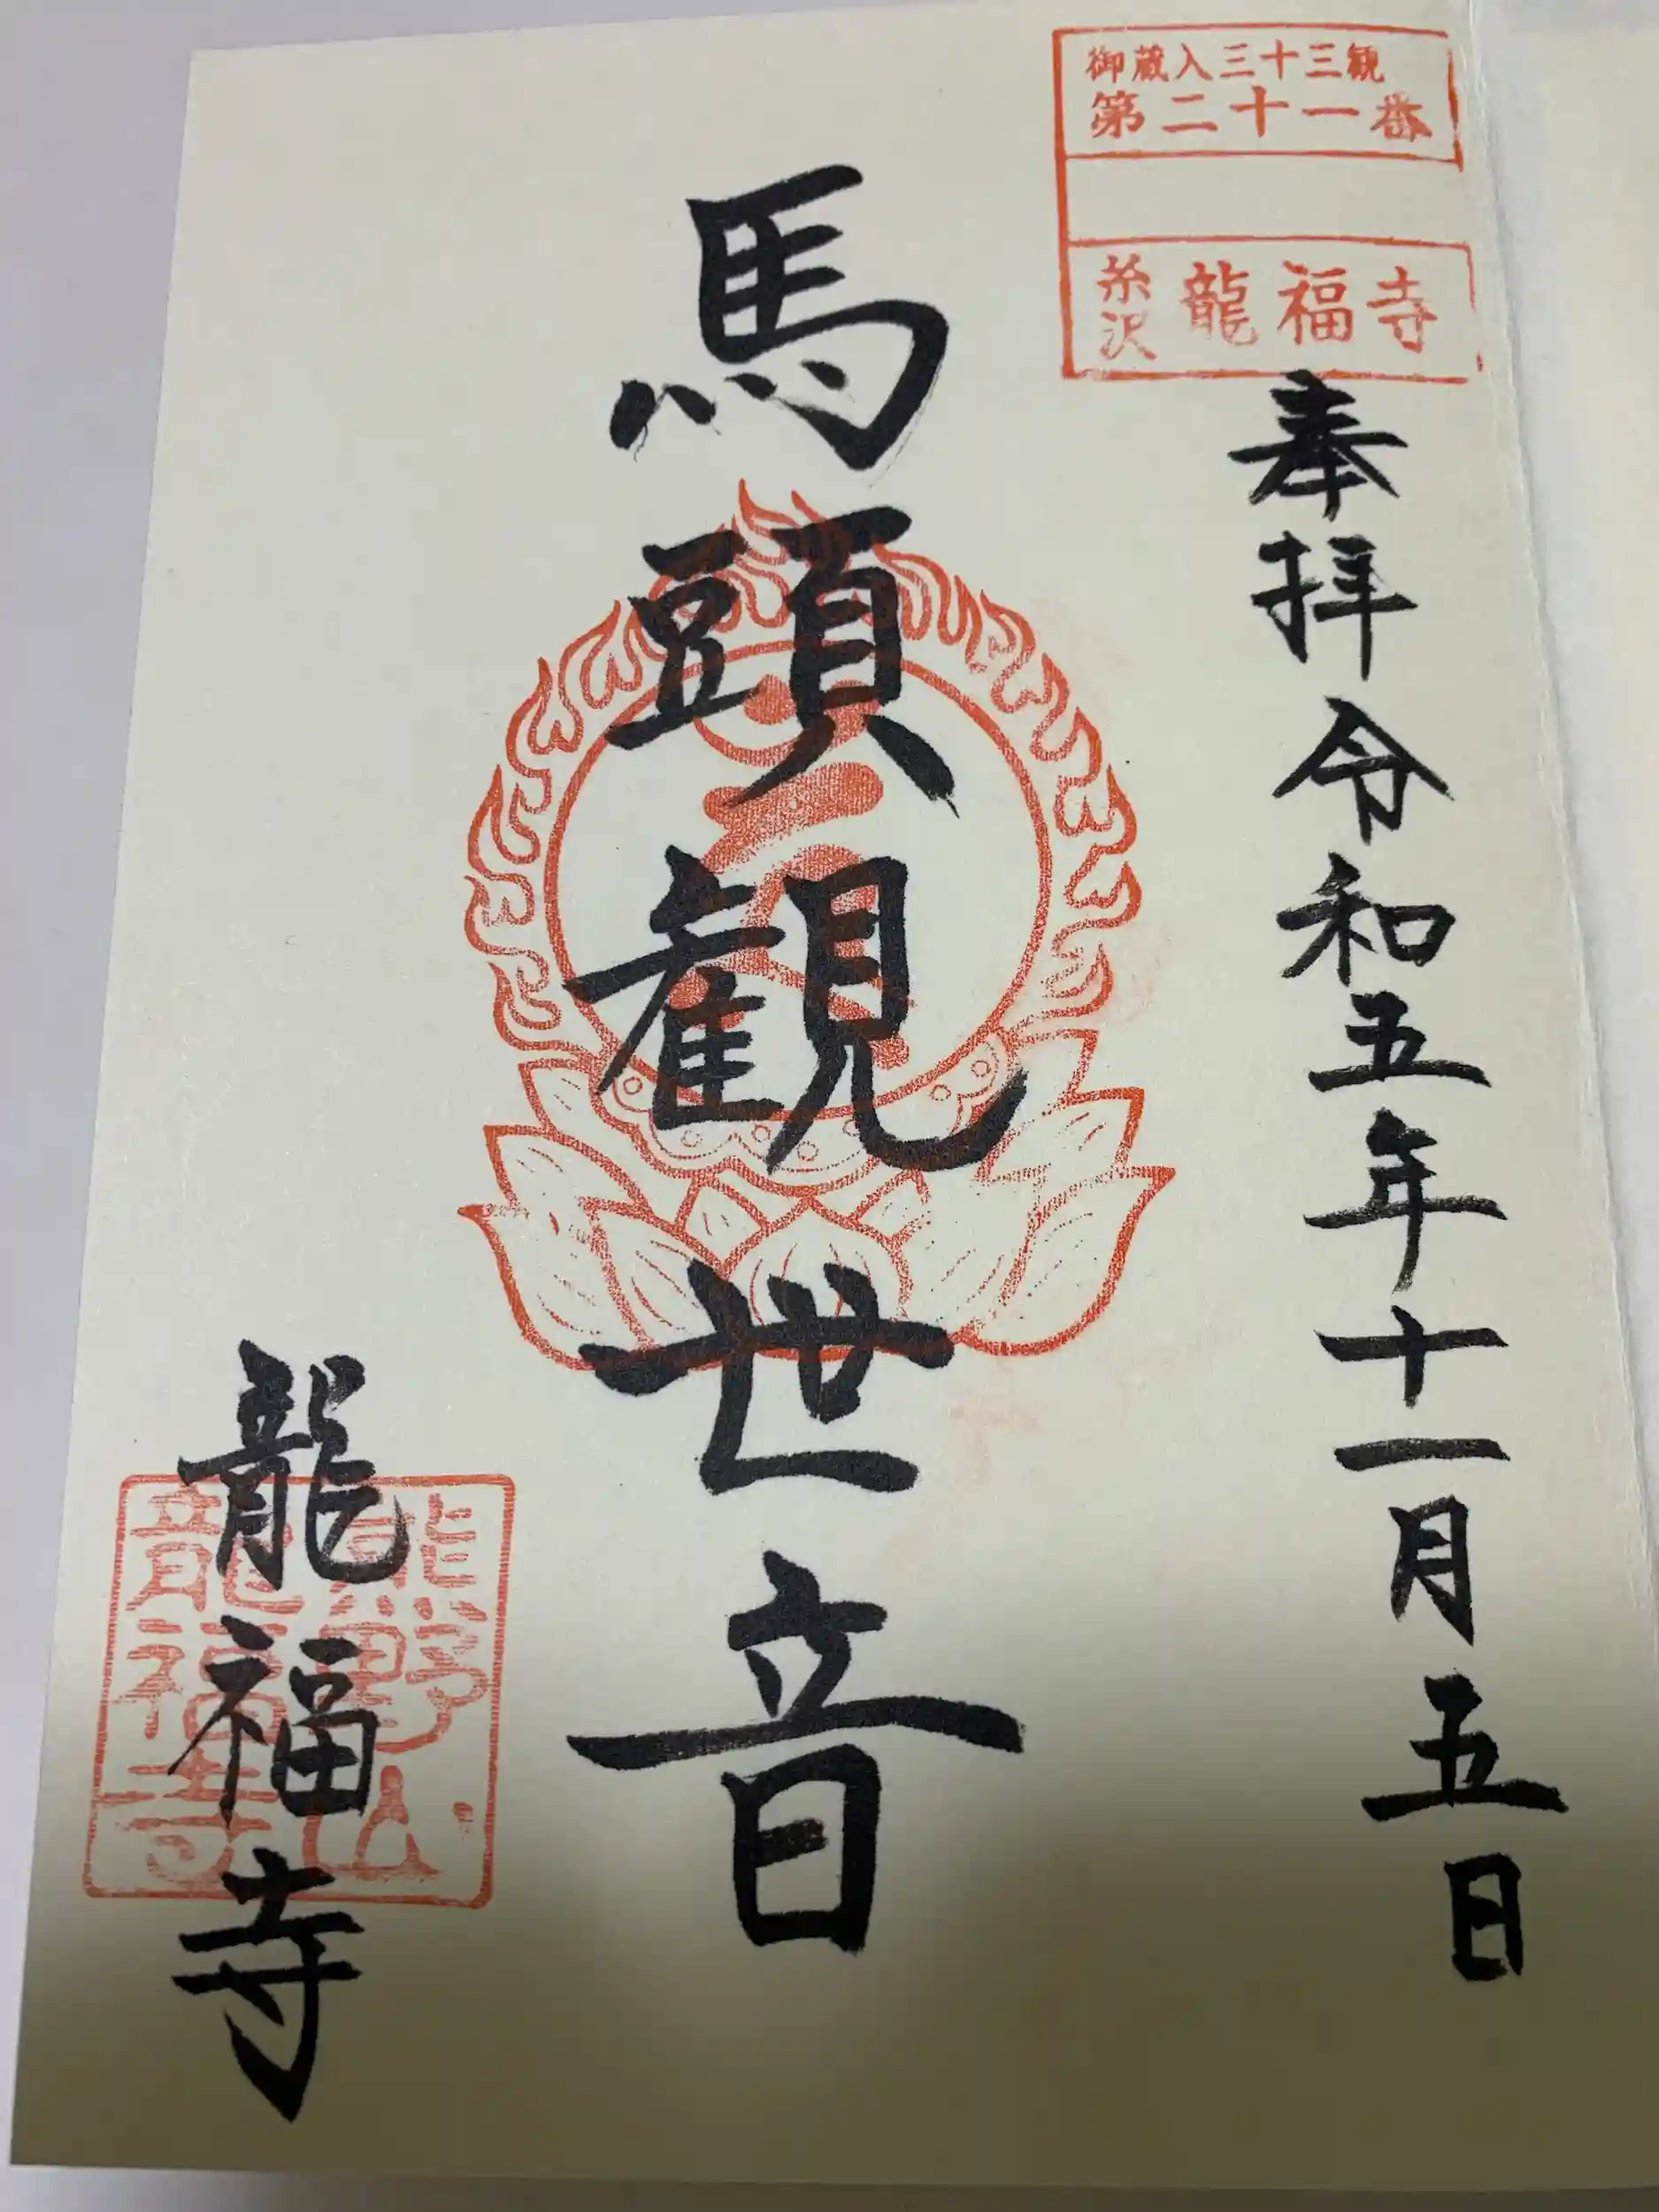 御蔵入三十三観
第二十一番
糸沢 龍福寺
奉拝 令和五年十一月五日
馬頭観世音
龍福寺
熊野山
龍福寺